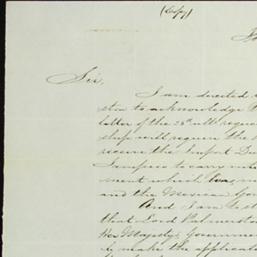 (Copy)
Sir,
I am directed
to acknowledge
letter of the 25th ult. reque
ship will require the
receive the Import Du
Tampico to carry
ment which has
and the Mexican Gov
And I am
that Lord Palmerst
Her Majesty's Governme
make the applica